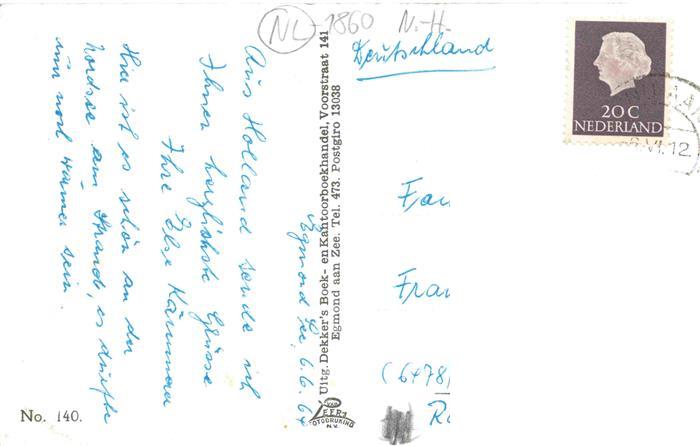 NL-1860 N.-H.
Egmond See, 6.6.64
Aus Holland sende ich
Ihnen herzlichste Grüsse
Ihre Else
Hier ist es schön an der
Nordsee am Strand, es dürfte
nur noch wärmer sein.
No. 140.
Uitg. Dekker's Boek- en Kantoorboekhandel, Voorstraat 141
Egmond aan Zee. Tel. 473. Postgiro 13038
VAN LEER'S
FOTODRUKIND
N.V.
Deutschland
20 C
NEDERLAND
VI.12
Fran
(6478